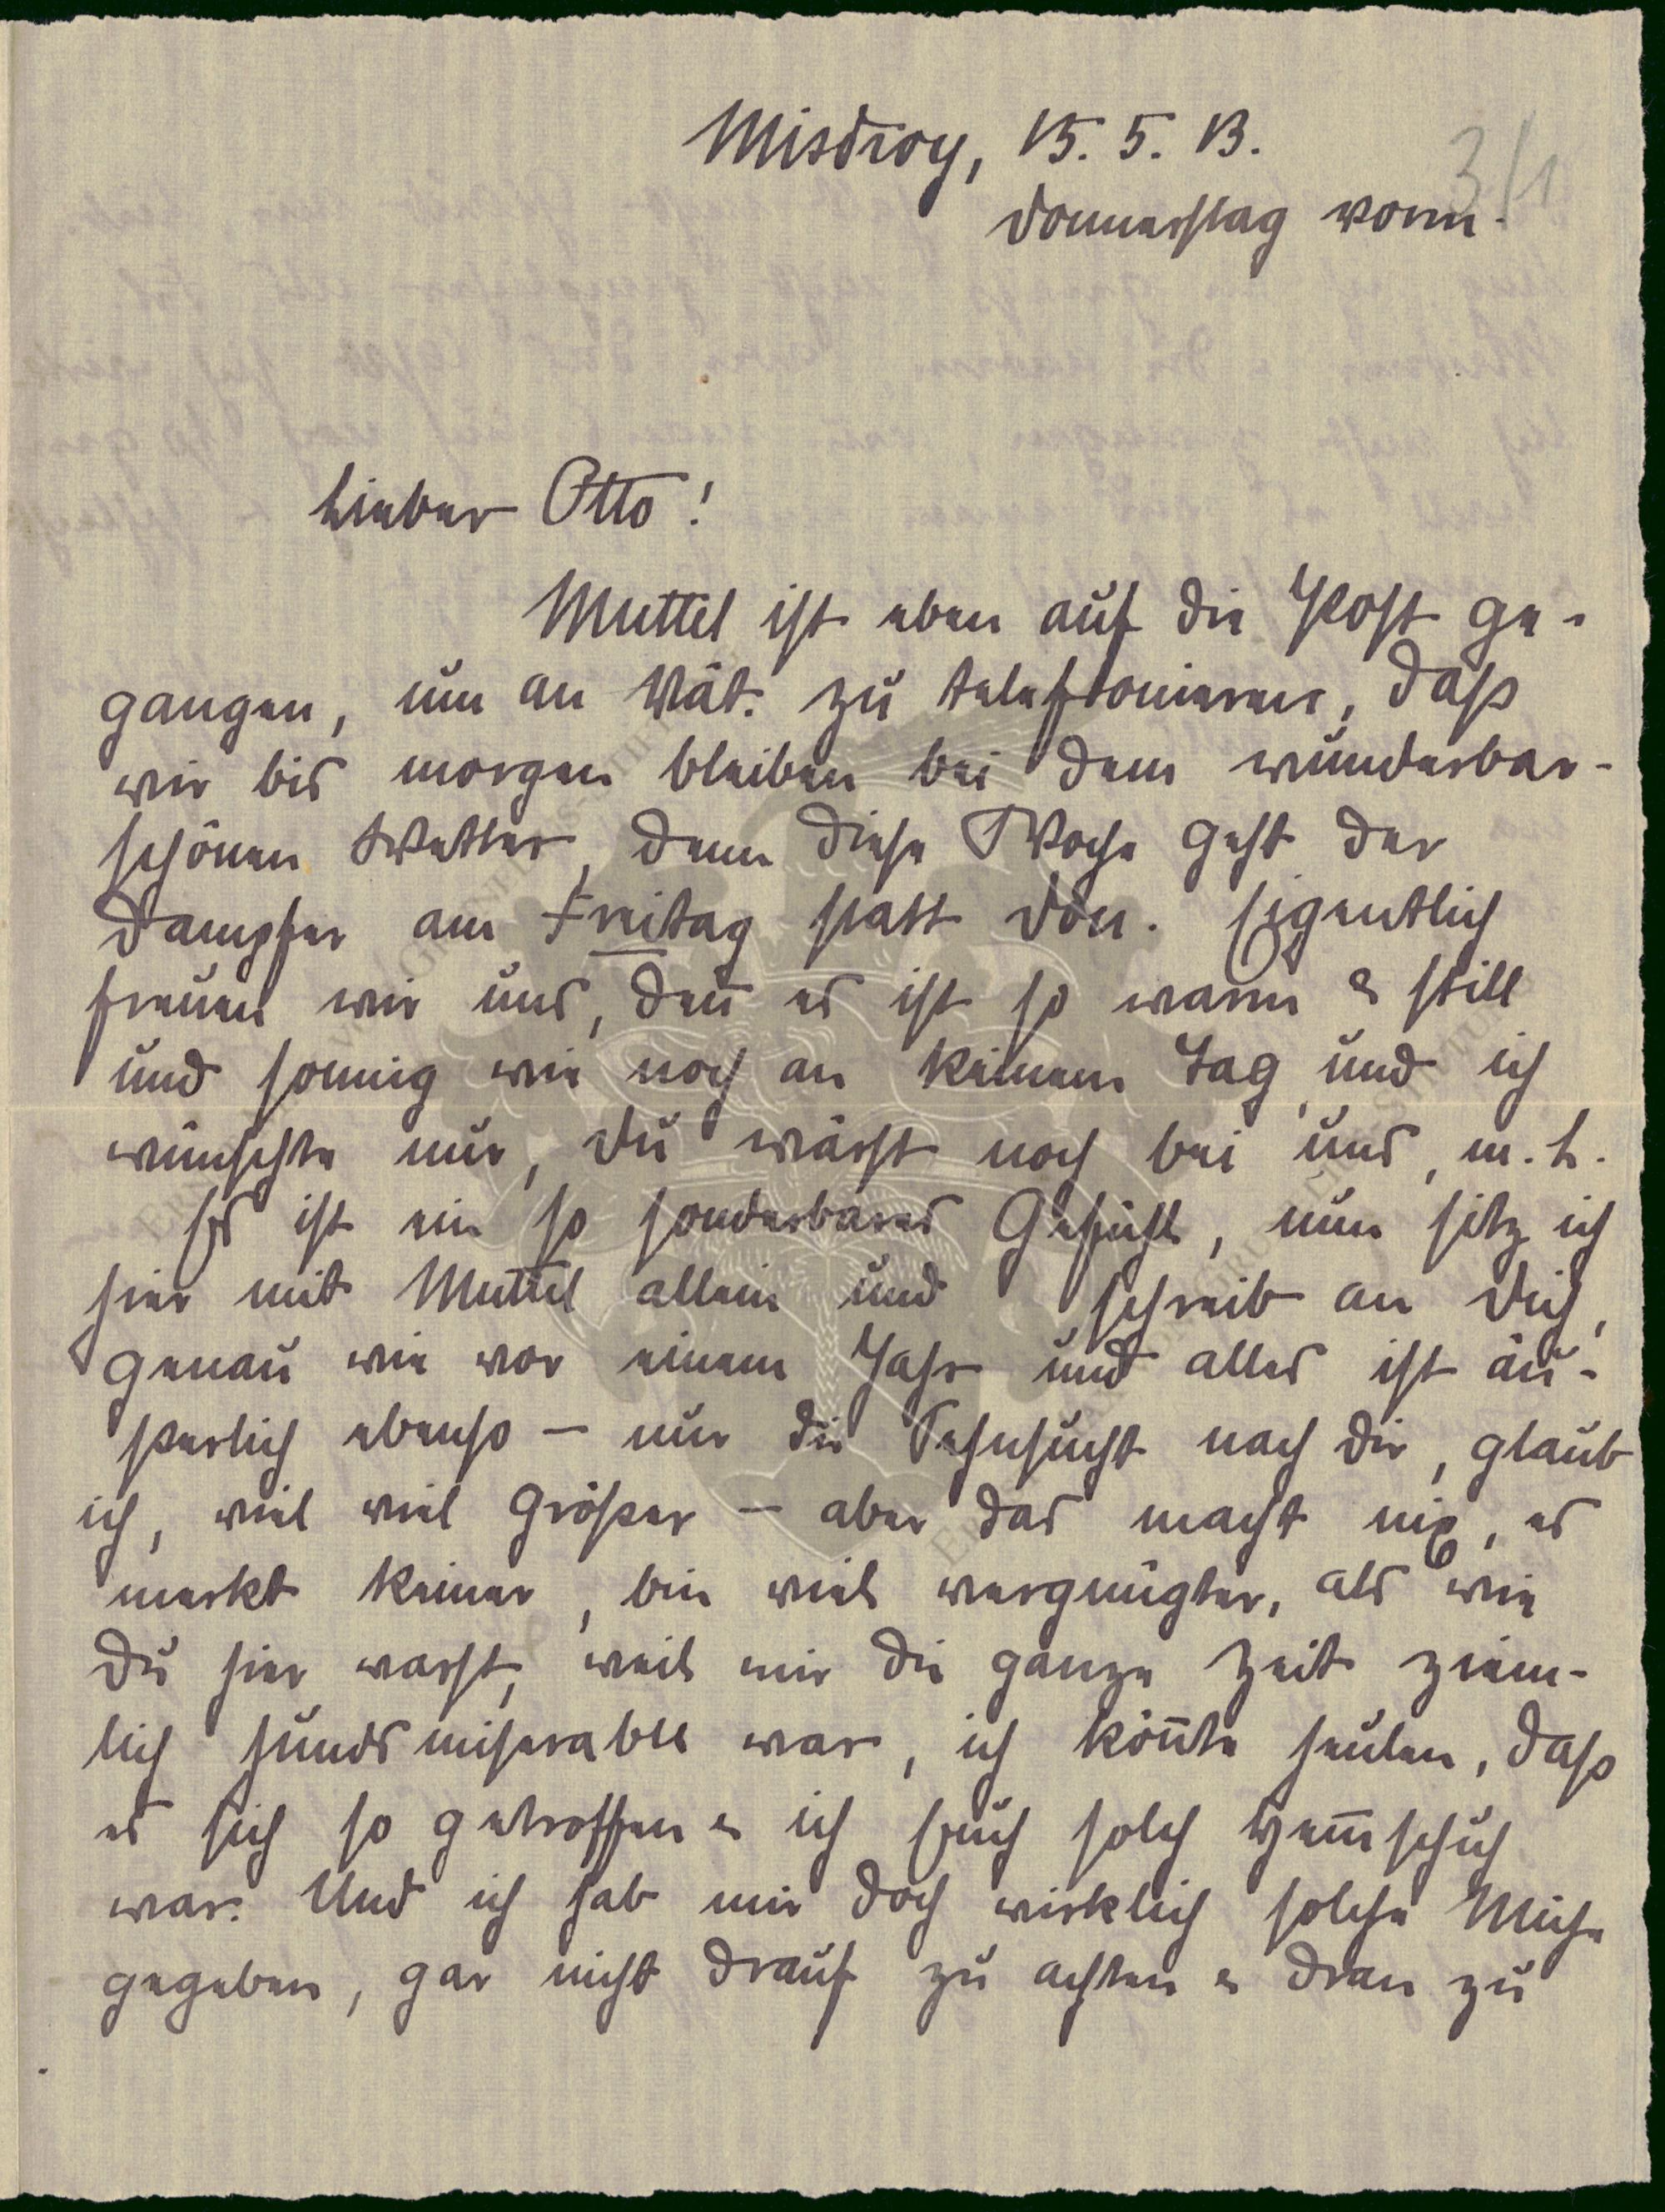 Misdroy, 15. 5. 13.
3/1
Donnerstag vorm.
Lieber Otto!
Muttel ist eben auf die Post ge-
gangen, um an Vät. zu telefonieren, daß
wir bis morgen bleiben bei dem wunderbar-
schönen Wetter, denn diese Woche geht der
Dampfer am Freitag statt Don. Eigentlich
freuen wir uns, den̄ es ist so warm & still
und sonnig wie noch an keinem Tag und ich
wünschte nur, Du wärst noch bei uns, m. L.
Es ist ein so sonderbares Gefühl, nun sitz ich
hier mit Muttel allein und schreib an Dich,
genau wie vor einem Jahr und alles ist äu-
ßerlich ebenso – nur die Sehnsucht nach Dir, glaub
ich, viel viel größer – aber das macht nix, es
merkt keiner, bin viel vergnügter, als wie
Du hier warst, weil mir die ganze Zeit ziem-
lich hundsmiserabel war, ich kön̄te heulen, daß
es sich so getroffen & ich Euch solch Hem̄schuh
war. Und ich hab mir doch wirklich solche Mühe
gegeben, gar nicht drauf zu achten & dran zu